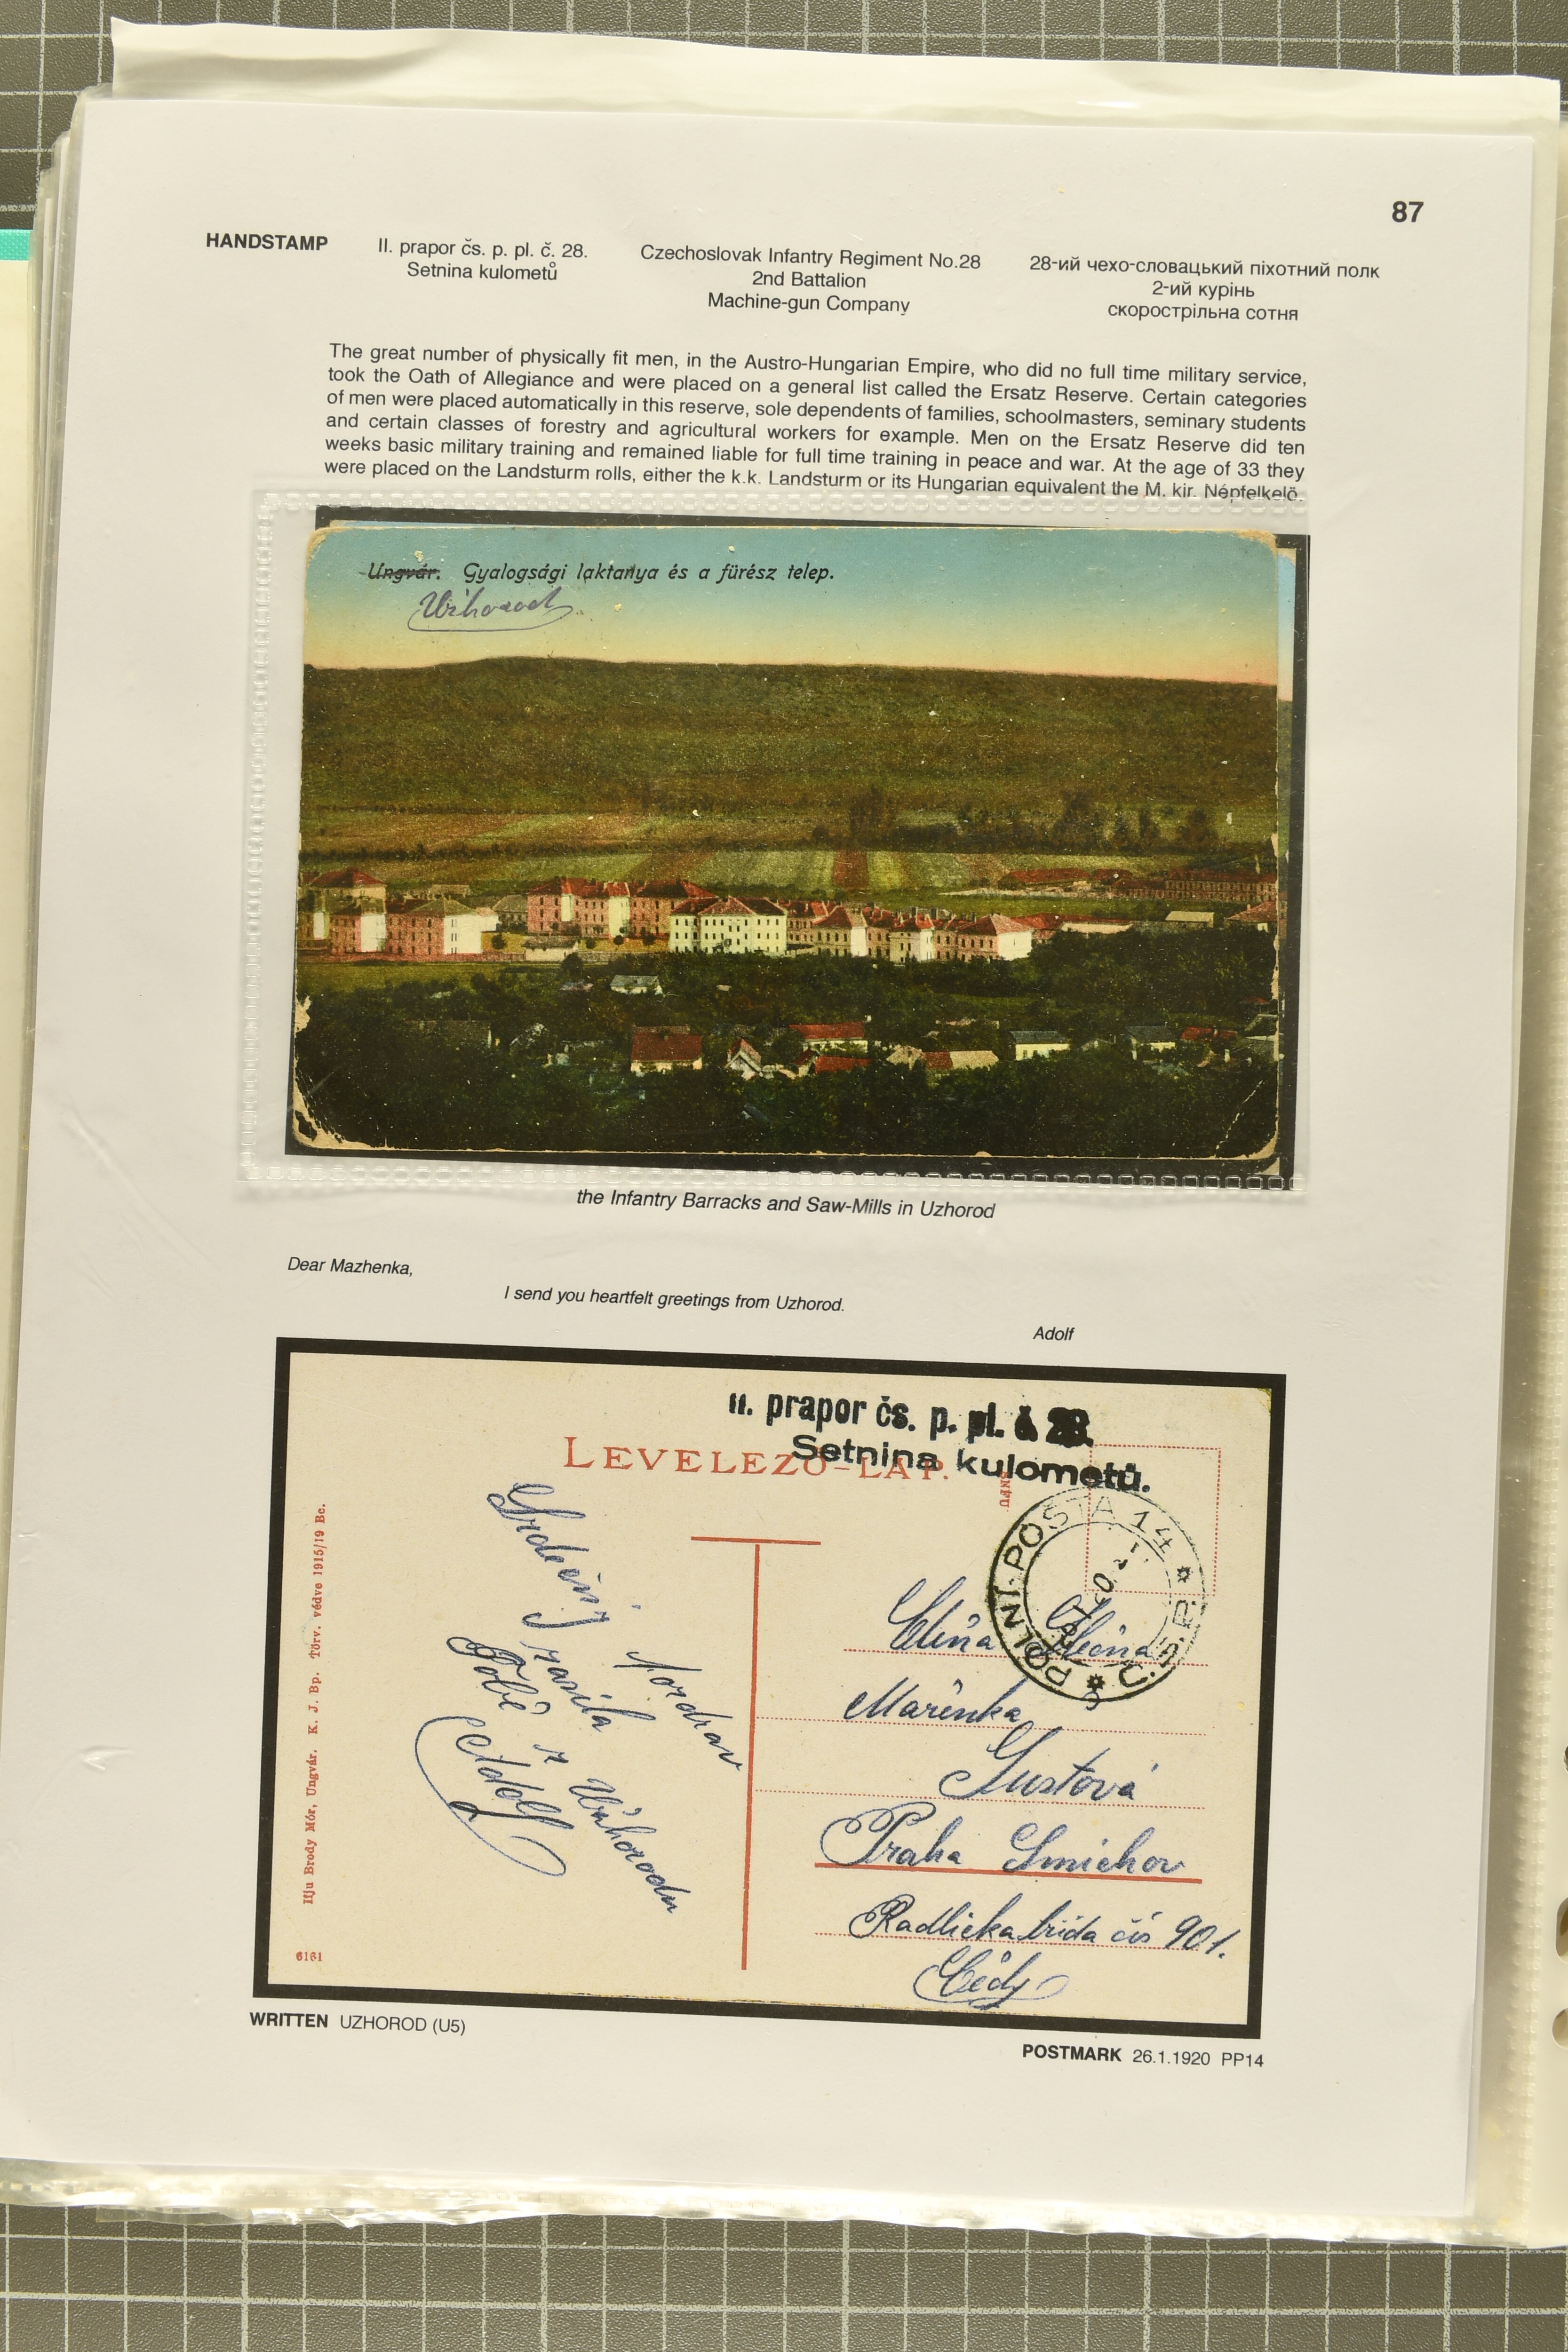 87
HANDSTAMP
II. prapor čs. p. pl. č. 28.
Setnina kulometů
Czechoslovak Infantry Regiment No.28
2nd Battalion
Machine-gun Company
28-ий чехо-словацький піхотний полк
2-ий курінь
скорострільна сотня
The great number of physically fit men, in the Austro-Hungarian Empire, who did no full time military service,
took the Oath of Allegiance and were placed on a general list called the Ersatz Reserve. Certain categories
of men were placed automatically in this reserve, sole dependents of families, schoolmasters, seminary students
and certain classes of forestry and agricultural workers for example. Men on the Ersatz Reserve did ten
weeks basic military training and remained liable for full time training in peace and war. At the age of 33 they
were placed on the Landsturm rolls, either the k.k. Landsturm or its Hungarian equivalent the M. kir. Népfelkelő.
Ungvár. Gyalogsági laktanya és a fürész telep.
Užhorod
the Infantry Barracks and Saw-Mills in Uzhorod
Dear Mazhenka,
I send you heartfelt greetings from Uzhorod.
Adolf
II. prapor čs. p. pl. č 28.
Setnina kulometů.
LEVELEZŐ-LAP.
POLNÍ POSTA 14
Č.S.P.
Srdečný pozdrav
zasíla
Tobě z Užhorodu
Adolf
Slečna
Mařenka
Gustová
Praha Smichov
Radlicka třída čís 901.
Čechy
Ifju Brody Mór, Ungvár. K. J. Bp. Törv. védve 1915/19 Bc.
6161
WRITTEN UZHOROD (U5)
POSTMARK 26.1.1920 PP14